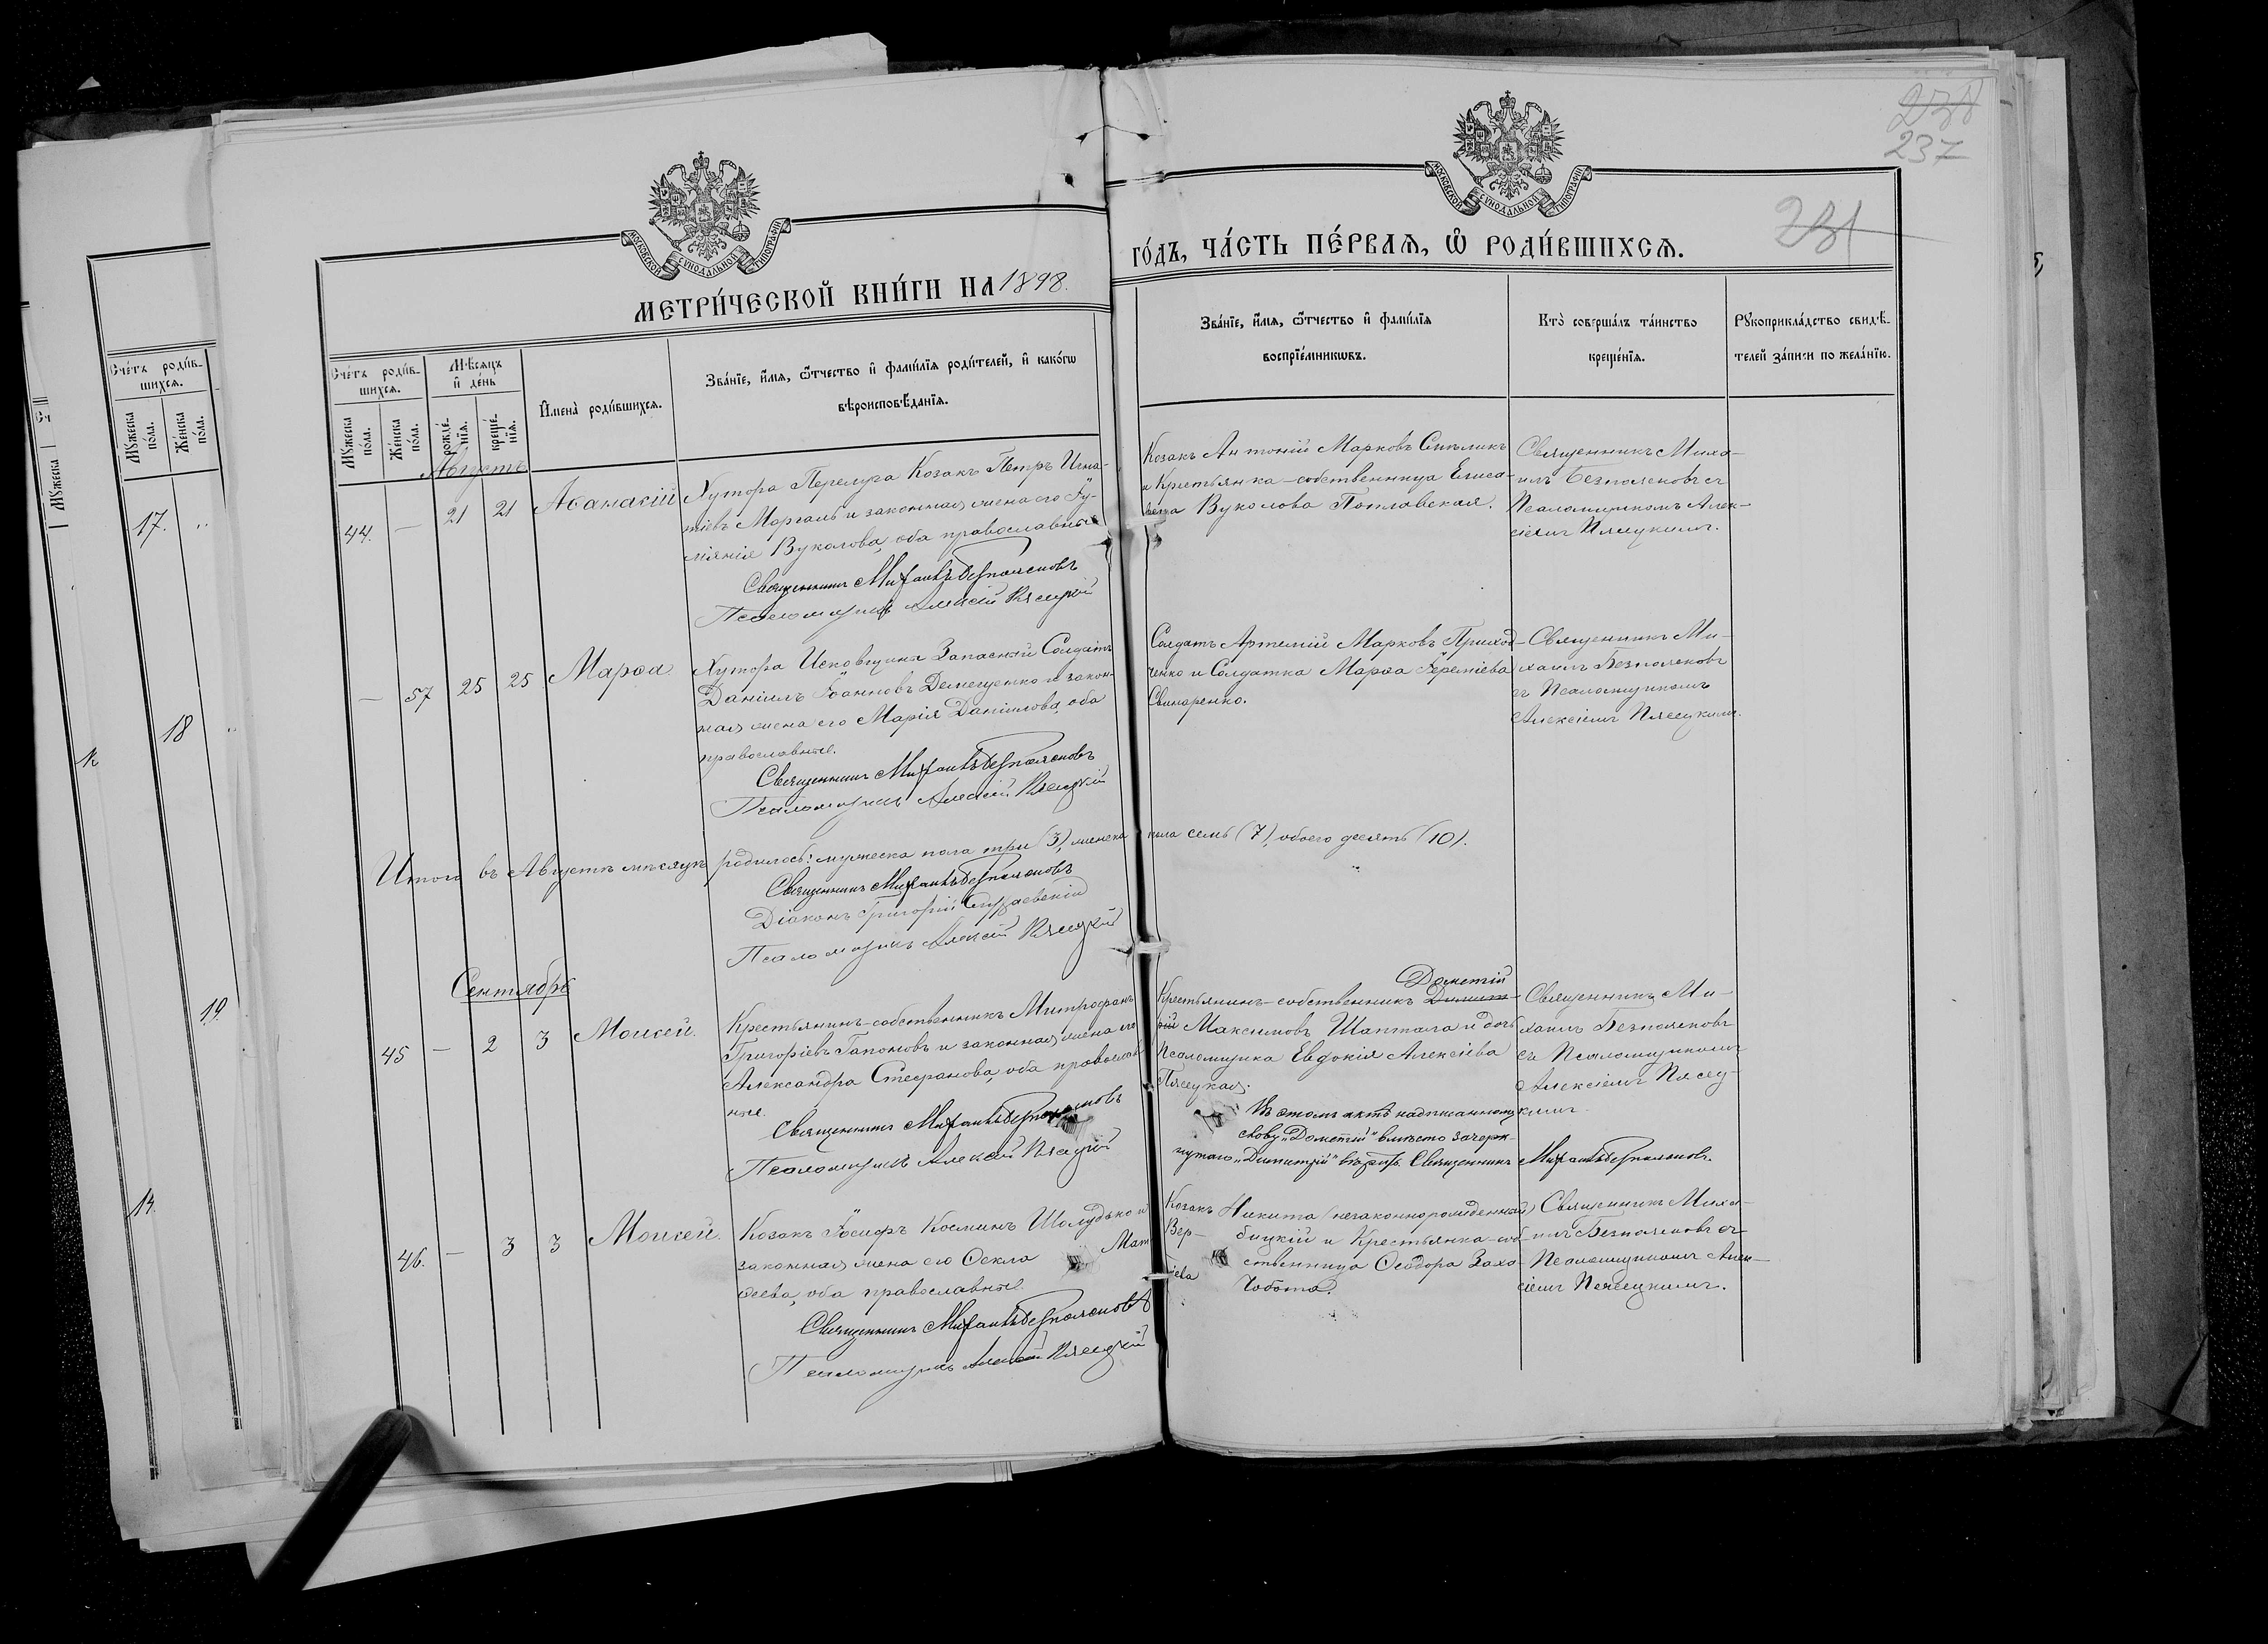 238
237
231
МОСКОВСКОЙ СѴНОДАЛЬНОЙ ТИПОГРАФІИ
МОСКОВСКОЙ СѴНОДАЛЬНОЙ ТИПОГРАФІИ
МЕТРИ́ЧЕСКОЙ КНИ́ГИ НА 1898.
ГО́ДЪ, ЧА́СТЬ ПЕ́РВАѦ, Ѽ РОДИ́ВШИХСѦ.
Сче́тъ роди́в-
шихсѧ.
Мꙋжеска по́ла.
Же́нска по́ла.
М҃ѣсѧцъ
и҆ де́нь
рожде́-
нїѧ.
креще́-
нїѧ.
И҆мена̀ роди́вшихсѧ.
Зва́нїе, и҆́мѧ, ѻ҆́тчество и҆ фами́лїѧ роди́телей, и҆ како́гѡ
вѣроисповѣ́данїѧ.
Зва́нїе, и҆́мѧ, ѻ҆́тчество и҆ фами́лїѧ
воспрїе́мникѡвъ.
Кто̀ соверша́лъ та́инство
креще́нїѧ.
Рꙋкоприкла́дство свидѣ́-
телей за́писи по жела́нїю.
Августъ
44. — 21 21 Аѳанасій
Хутора Перелуга Козакъ Петръ Игна-
тіевъ Моргаль и законная жена его Іу-
ліянія Вуколова, оба православные
Священникъ Михаилъ Безпоясковъ
Псаломщикъ Алексій Пясецкій
Козакъ Антоній Марковъ
и Крестьянка-собственница Елиса-
вета Вуколова Потлавская.
Священникъ Миха-
илъ Безпоясковъ съ
Псаломщикомъ Алек-
сіемъ Пясецкимъ.
— 57 25 25 Марѳа
Хутора Исковщина Запасный Солдатъ
Даніилъ Іоанновъ Демещенко и закон-
ная жена его Марія Даніилова, оба
православные.
Священникъ Михаилъ Безпоясковъ
Псаломщикъ Алексій Пясецкій
Солдатъ Артемій Марковъ Приход-
ченко и Солдатка Марѳа Іереміева
Свинаренко.
Священникъ Ми-
хаилъ Безпоясковъ
съ Псаломщикомъ
Алексіемъ Пясецкимъ.
Итого въ Августѣ мѣсяцѣ родилось: мужеска пола три (3), женска пола семь (7), обоего десять (10).
Священникъ Михаилъ Безпоясковъ
Діаконъ Григорій
Псаломщикъ Алексій Пясецкій
Сентябрь
45 — 2 3 Моисей.
Крестьянинъ-собственникъ Митрофанъ
Григоріевъ Гапоновъ и законная жена его
Александра Стефанова, оба православ-
ные.
Священникъ Михаилъ Безпоясковъ
Псаломщикъ Алексій Пясецкій
Дометій
Крестьянинъ-собственникъ Димит-
рій Максимовъ Шаптала и дочь
Псаломщика Евдокія Алексіева
Пясецкая.
Въ этомъ актѣ надписанному
слову „Дометій" вмѣсто зачерк-
нутаго „Димитрій" вѣрить. Священникъ Михаилъ Безпоясковъ.
Священникъ Ми-
хаилъ Безпоясковъ
съ Псаломщикомъ
Алексіемъ Пясец-
кимъ.
46. — 3 3 Моисей.
Козакъ Іосифъ Косминъ Шолудько и
законная жена его Ѳекла Мат-
ѳеева, оба православные
Священникъ Михаилъ Безпоясковъ
Псаломщикъ Алексій Пясецкій
Козакъ Никита (незаконнорожденный) Вер-
бицкій и Крестьянка-соб-
ственница Ѳеодора Заха-
ріева Чобота.
Священникъ Миха-
илъ Безпоясковъ съ
Псаломщикомъ Алек-
сіемъ Пясецкимъ.
Сче́тъ роди́в-
шихсѧ.
Мꙋжеска
по́ла.
Же́нска
по́ла.
17.
18
19.
Мꙋжеска
14.